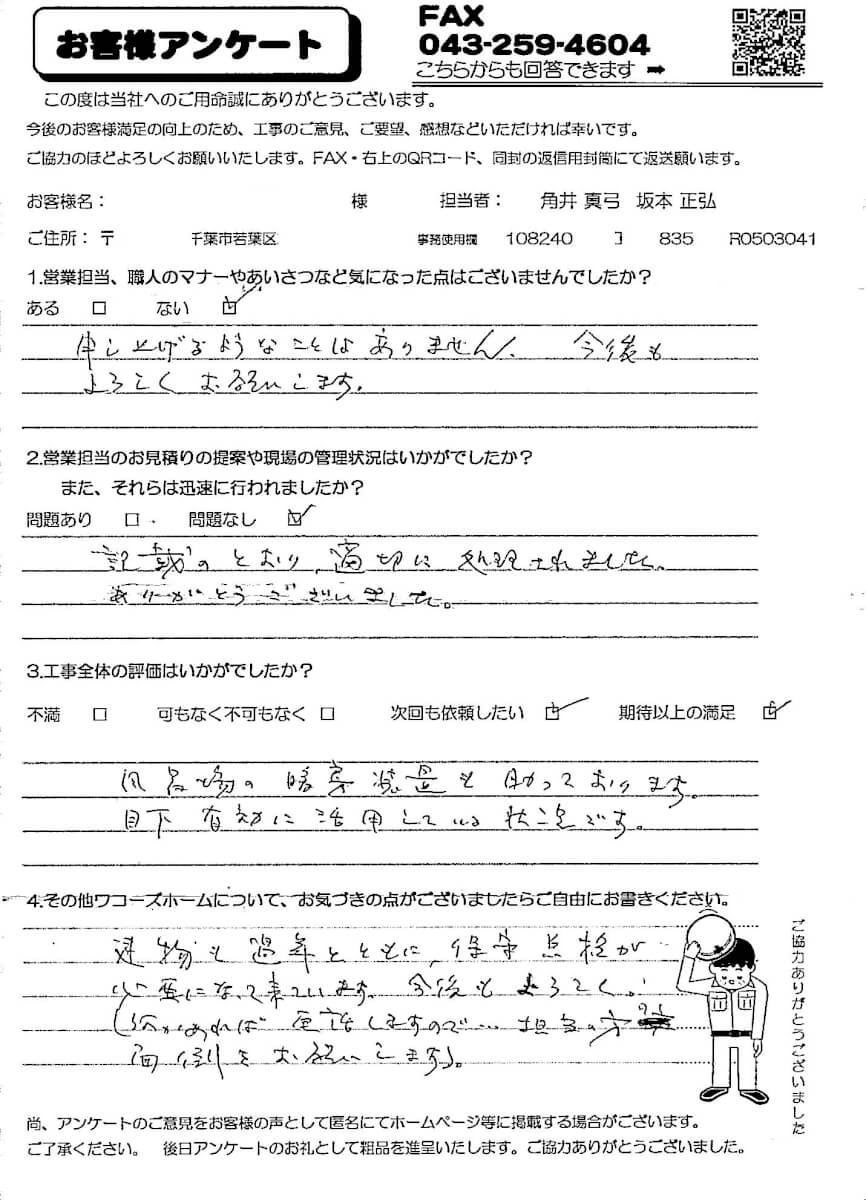 お客様アンケート
FAX
043-259-4604
こちらからも回答できます ➡
この度は当社へのご用命誠にありがとうございます。
今後のお客様満足の向上のため、工事のご意見、ご要望、感想などいただければ幸いです。
ご協力のほどよろしくお願いいたします。FAX・右上のQRコード、同封の返信用封筒にて返送願います。
お客様名： 様 担当者： 角井 真弓 坂本 正弘
ご住所：〒 千葉市若葉区 事務使用欄 108240 ｺ 835 R0503041
1.営業担当、職人のマナーやあいさつなど気になった点はございませんでしたか？
ある □ ない ☑
申し上げるようなことはありません。 今後も
よろしくお願いします。
2.営業担当のお見積りの提案や現場の管理状況はいかがでしたか？
また、それらは迅速に行われましたか？
問題あり □ ・ 問題なし ☑
記載のとおり、適切に処理されました。
ありがとうございました。
3.工事全体の評価はいかがでしたか？
不満 □ 可もなく不可もなく □ 次回も依頼したい ☑ 期待以上の満足 ☑
風呂場の暖房装置も助かっております。
目下有効に活用している状況です。
4.その他ワコーズホームについて、お気づきの点がございましたらご自由にお書きください。
建物も過年とともに、保守点検が
必要になって来ています。今後もよろしく。
があれば電話しますので… 担当の方
面倒をお願いします」。
ご協力ありがとうございました
尚、アンケートのご意見をお客様の声として匿名にてホームページ等に掲載する場合がございます。
ご了承ください。 後日アンケートのお礼として粗品を進呈いたします。ご協力ありがとうございました。